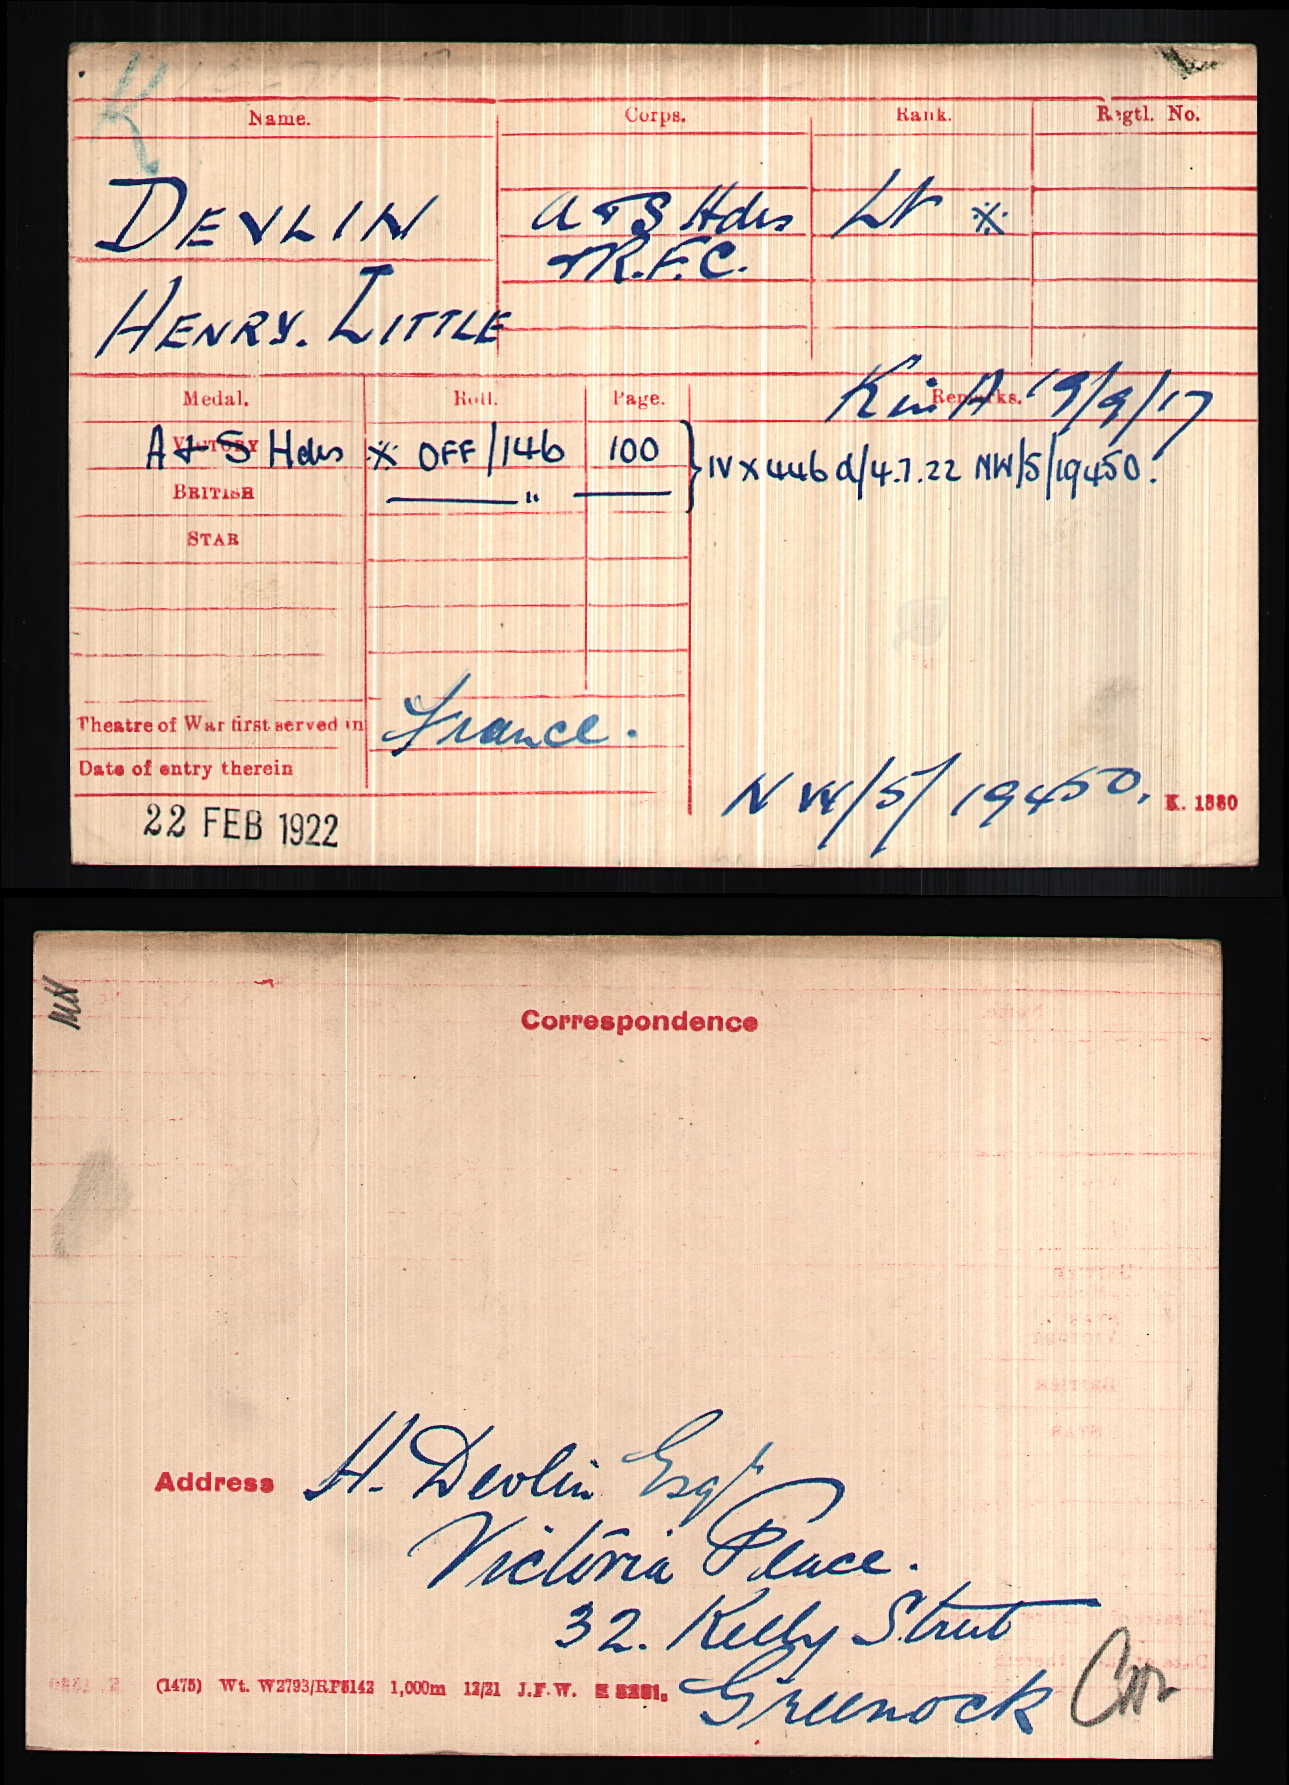 Name. Corps. Rank. Regtl. No.
DEVLIN A & S Hdrs Lt ※
& R.F.C.
HENRY. LITTLE
Medal. Roll. Page. Remarks. K in A 19/9/17
VICTORY A & S Hdrs ※ OFF/146 100 } IV X 446 d/4.7.22 NW/5/19450.
BRITISH — " —
STAR
Theatre of War first served in France.
Date of entry therein
NW/5/19450.
K. 1380
22 FEB 1922
Correspondence
Address H. Devlin Esqr
Victoria Place.
32. Kelly Street
Greenock
(1475) Wt. W2793/RP5142 1,000m 12/21 J.F.W.